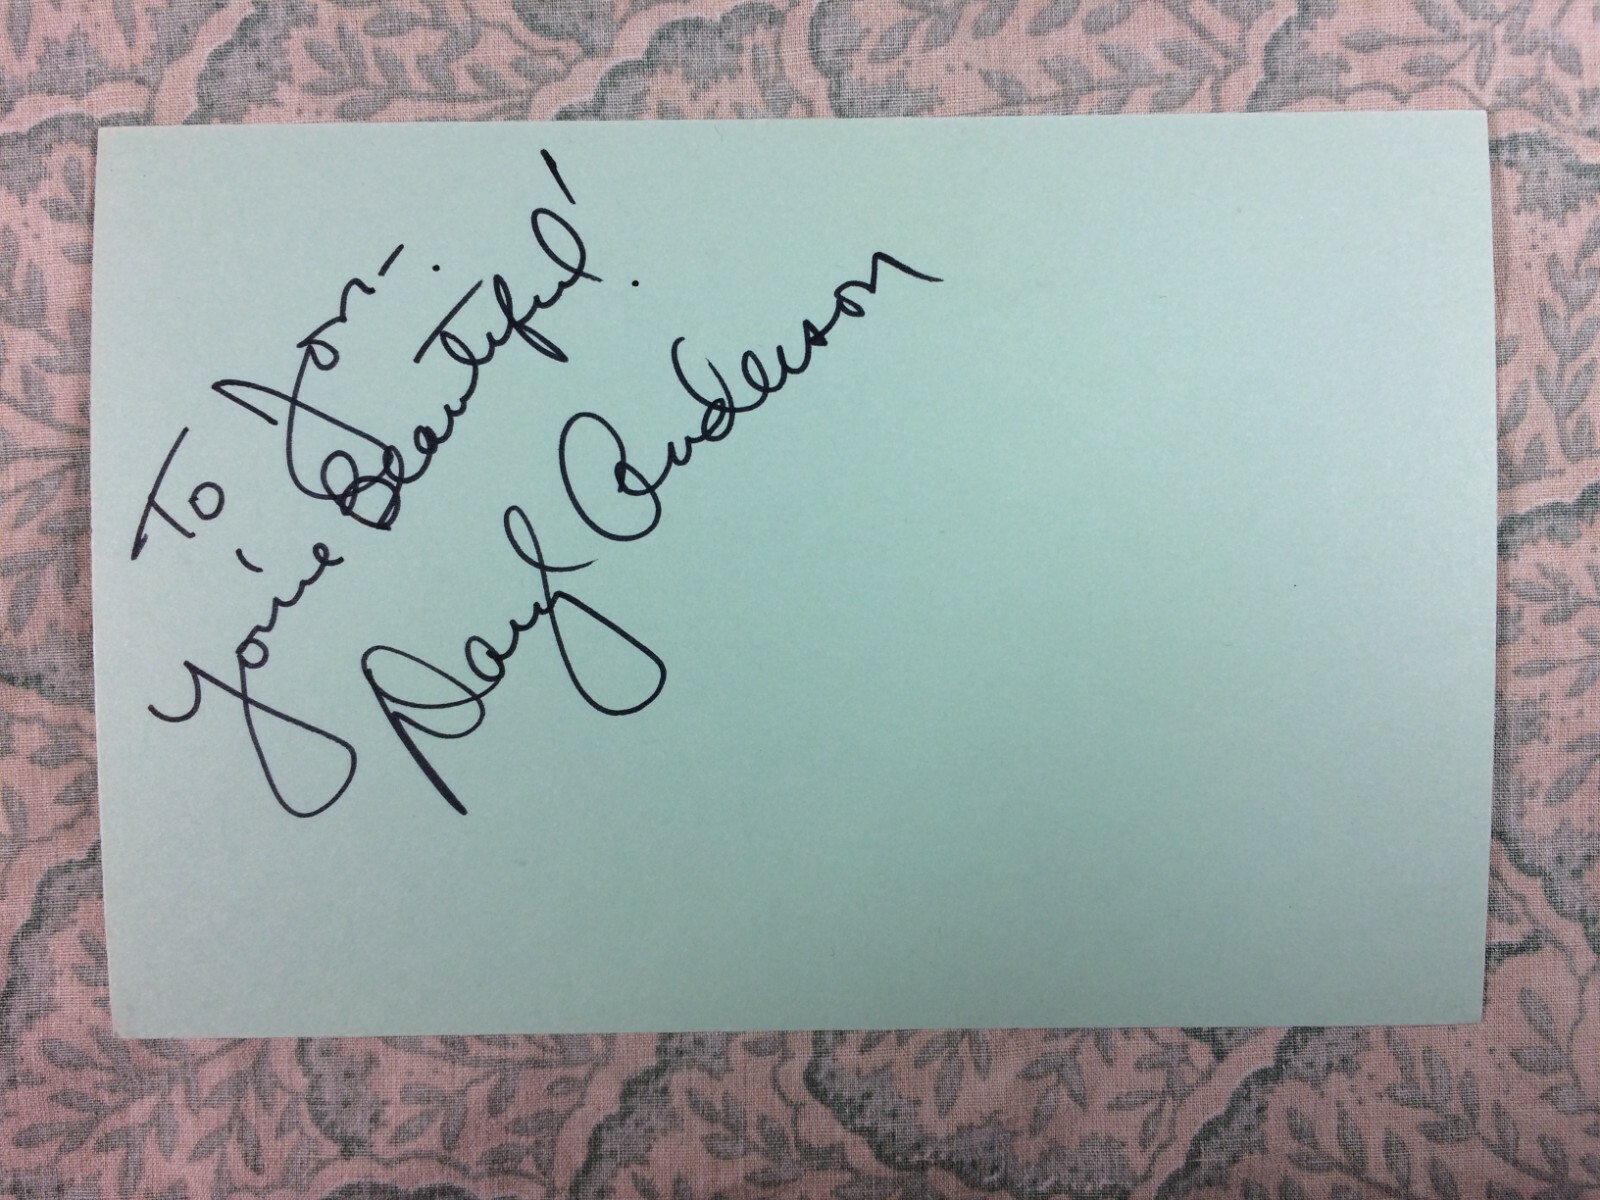 To Jon-
You're Beautiful!
Daryl Anderson